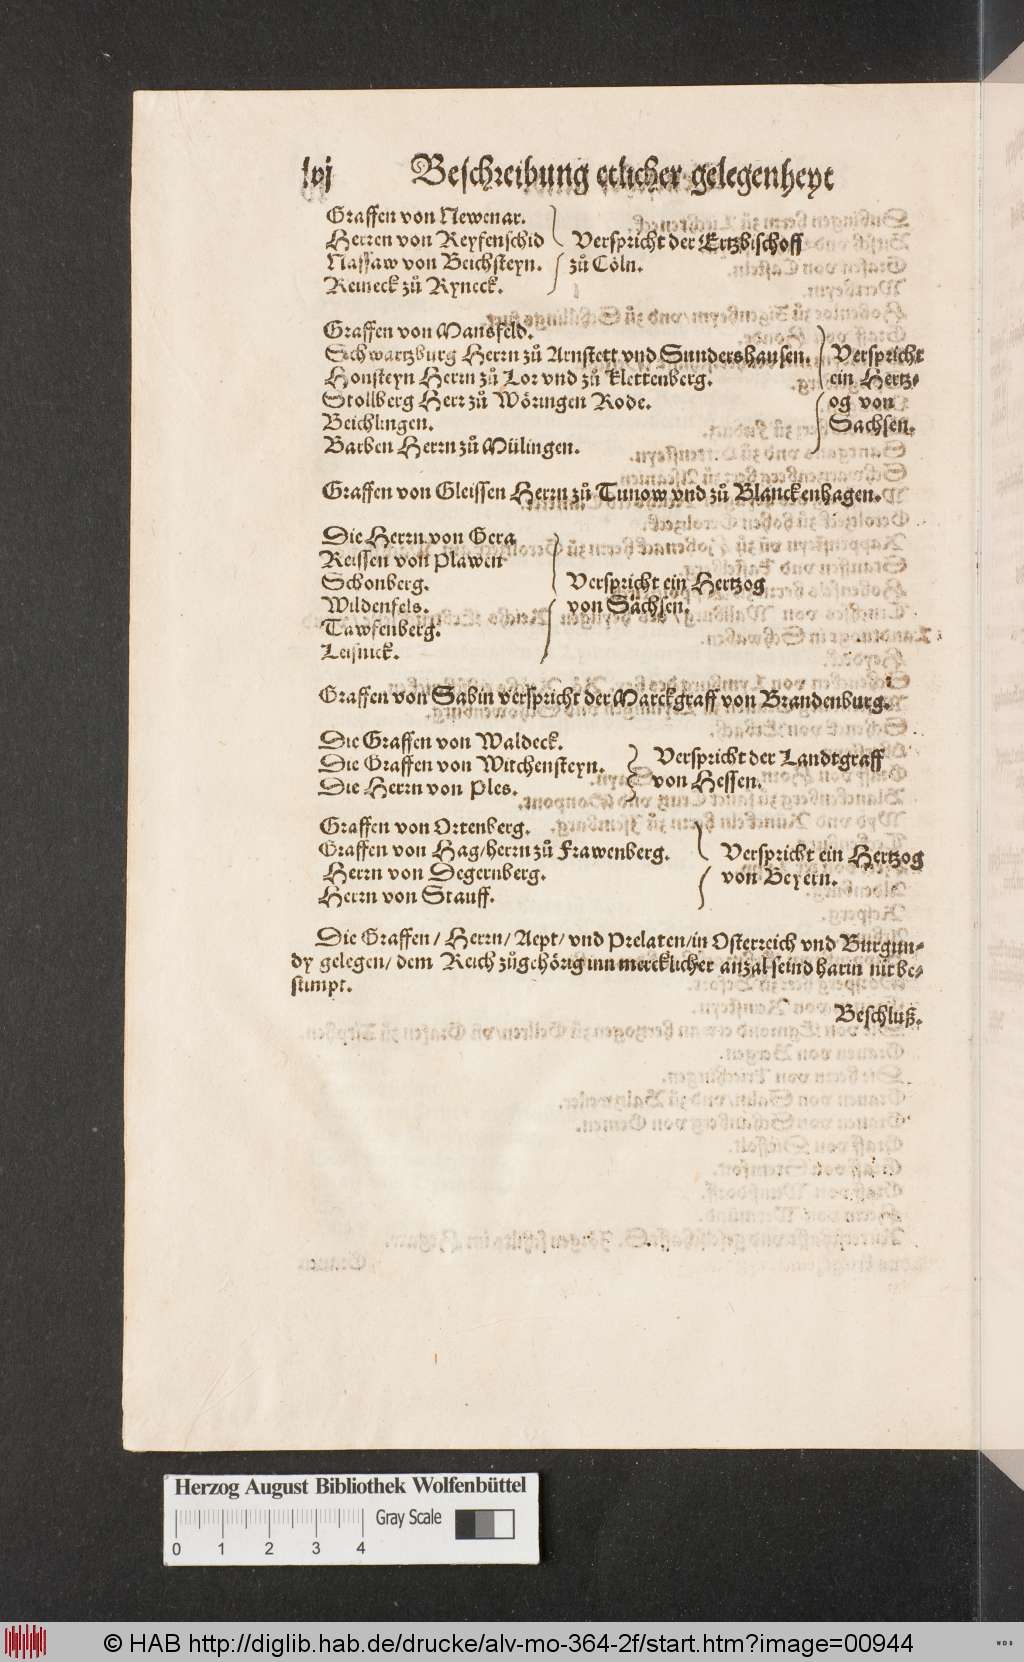 lvj Beschreibung etlicher gelegenheyt
Graffen von Newenar.
Herren von Reyfenschid
Nassaw von Beichsteyn.
Reineck zů Ryneck.
Verspricht der Ertzbischoff
zů Cöln.
Graffen von Mansfeld.
Schwartzburg Herrn zů Arnstett vnd Sundershausen.
Honsteyn Herrn zů Lor vnd zů Klettenberg.
Stollberg Herr zů Wöringen Rode.
Beichlingen.
Barben Herrn zů Mülingen.
Verspricht
ein Hertz-
og von
Sachsen.
Graffen von Gleissen Herrn zů Tunow vnd zů Blanckenhagen.
Die Herrn von Gera
Reissen von Plawen
Schonberg.
Wildenfels.
Tawfenberg.
Leisnick.
Verspricht ein Hertzog
von Sachsen.
Graffen von Sabin verspricht der Marckgraff von Brandenburg.
Die Graffen von Waldeck.
Die Graffen von Witchensteyn.
Die Herrn von Ples.
Verspricht der Landtgraff
von Hessen.
Graffen von Ortenberg.
Graffen von Hag/herrn zů Frawenberg.
Herrn von Degernberg.
Herrn von Stauff.
Verspricht ein Hertzog
von Beyern.
Die Graffen/ Herrn/ Aept/ vnd Prelaten/in Osterreich vnd Burgun-
dy gelegen/ dem Reich zůgehörig inn mercklicher anzal seind harin nit be-
stimpt.
Beschluß.
Herzog August Bibliothek Wolfenbüttel
Gray Scale
0 1 2 3 4
© HAB http://diglib.hab.de/drucke/alv-mo-364-2f/start.htm?image=00944